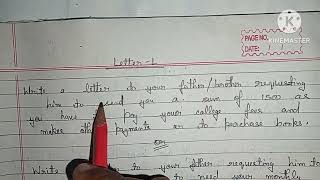 KINEMASTER
PAGE NO.
DATE
Letter-1
Write a letter to your father/brother requesting
him to send you a sum of 1500 as
you have pay your college fees and
makes other payments or to purchase books.
or
Write to your father requesting him to
to need your monthly